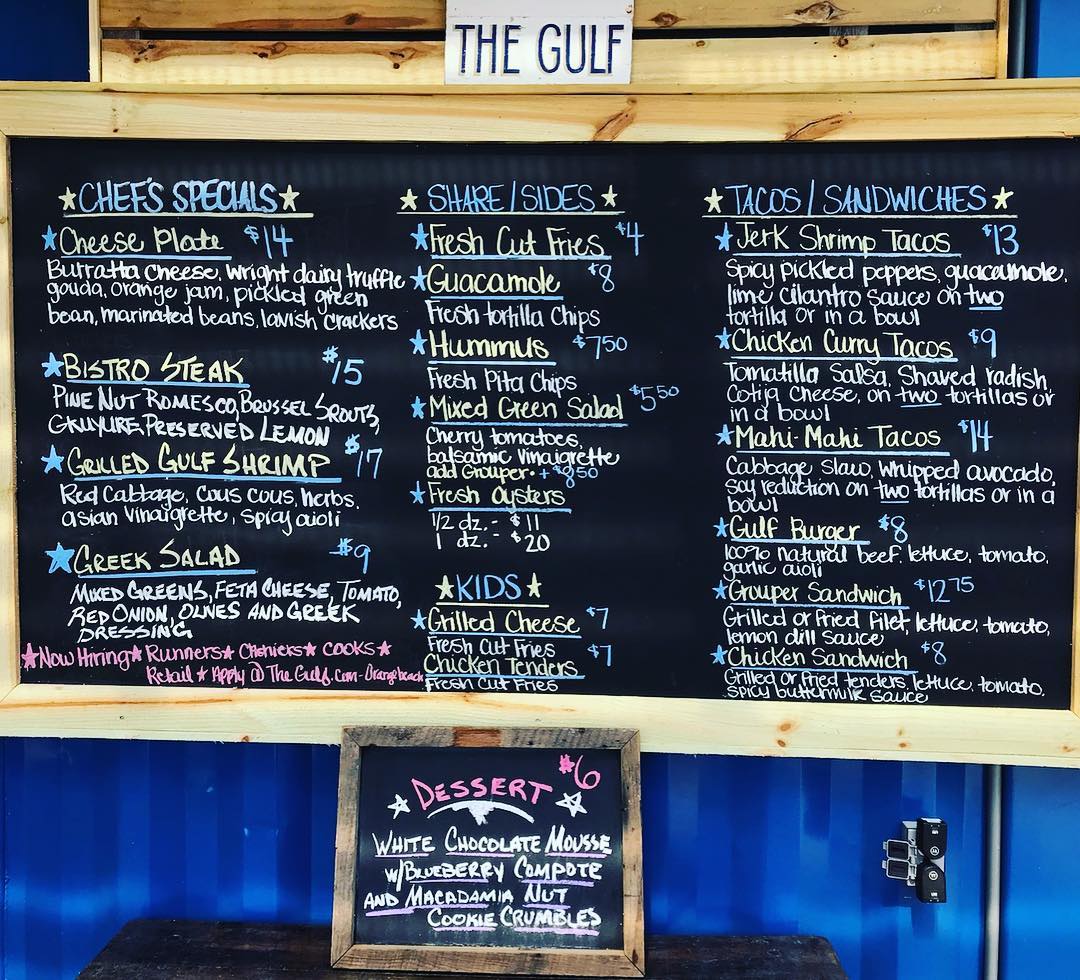 THE GULF
★CHEF'S SPECIALS★
★Cheese Plate $14
Burratta cheese, wright dairy truffle
gouda, orange jam, pickled green
bean, marinated beans, lavish crackers
★BISTRO STEAK $15
PINE NUT ROMESCO, BRUSSEL SPROUTS,
GRUYURE, PRESERVED LEMON
★GRILLED GULF SHRIMP $17
Red Cabbage, Cous cous, herbs,
asian vinaigrette, spicy aioli
★GREEK SALAD $9
MIXED GREENS, FETA CHEESE, TOMATO,
RED ONION, OLIVES AND GREEK
DRESSING
★Now Hiring★ Runners★ Cashiers★ cooks★
Retail ★ Apply @ The Gulf.com-Orangebeach
★ SHARE/SIDES ★
★Fresh Cut Fries $4
★Guacamole $8
Fresh tortilla Chips
★Hummus $7.50
Fresh Pita Chips
★Mixed Green Salad $5.50
Cherry tomatoes,
balsamic vinaigrette
add Grouper • + $8.50
★Fresh Oysters
1/2 dz. - $11
1 dz. - $20
★KIDS★
★Grilled Cheese $7
Fresh Cut Fries
Chicken Tenders $7
Fresh Cut Fries
★TACOS/SANDWICHES★
★Jerk Shrimp Tacos $13
Spicy pickled peppers, guacamole,
lime cilantro sauce on two
tortilla or in a bowl
★Chicken Curry Tacos $9
Tomatilla Salsa, Shaved radish,
Cotija Cheese, on two tortillas or
in a bowl
★Mahi-Mahi Tacos $14
Cabbage Slaw, Whipped avocado,
soy reduction on two tortillas or in a
bowl
★Gulf Burger $8
100% natural beef, lettuce, tomato,
garlic aioli
★Grouper Sandwich $12.75
Grilled or fried Filet, lettuce, tomato,
lemon dill sauce
★Chicken Sandwich $8
Grilled or fried tenders, lettuce, tomato,
spicy buttermilk sauce
★DESSERT★ $6
WHITE CHOCOLATE MOUSSE
W/BLUEBERRY COMPOTE
AND MACADAMIA NUT
COOKIE CRUMBLES